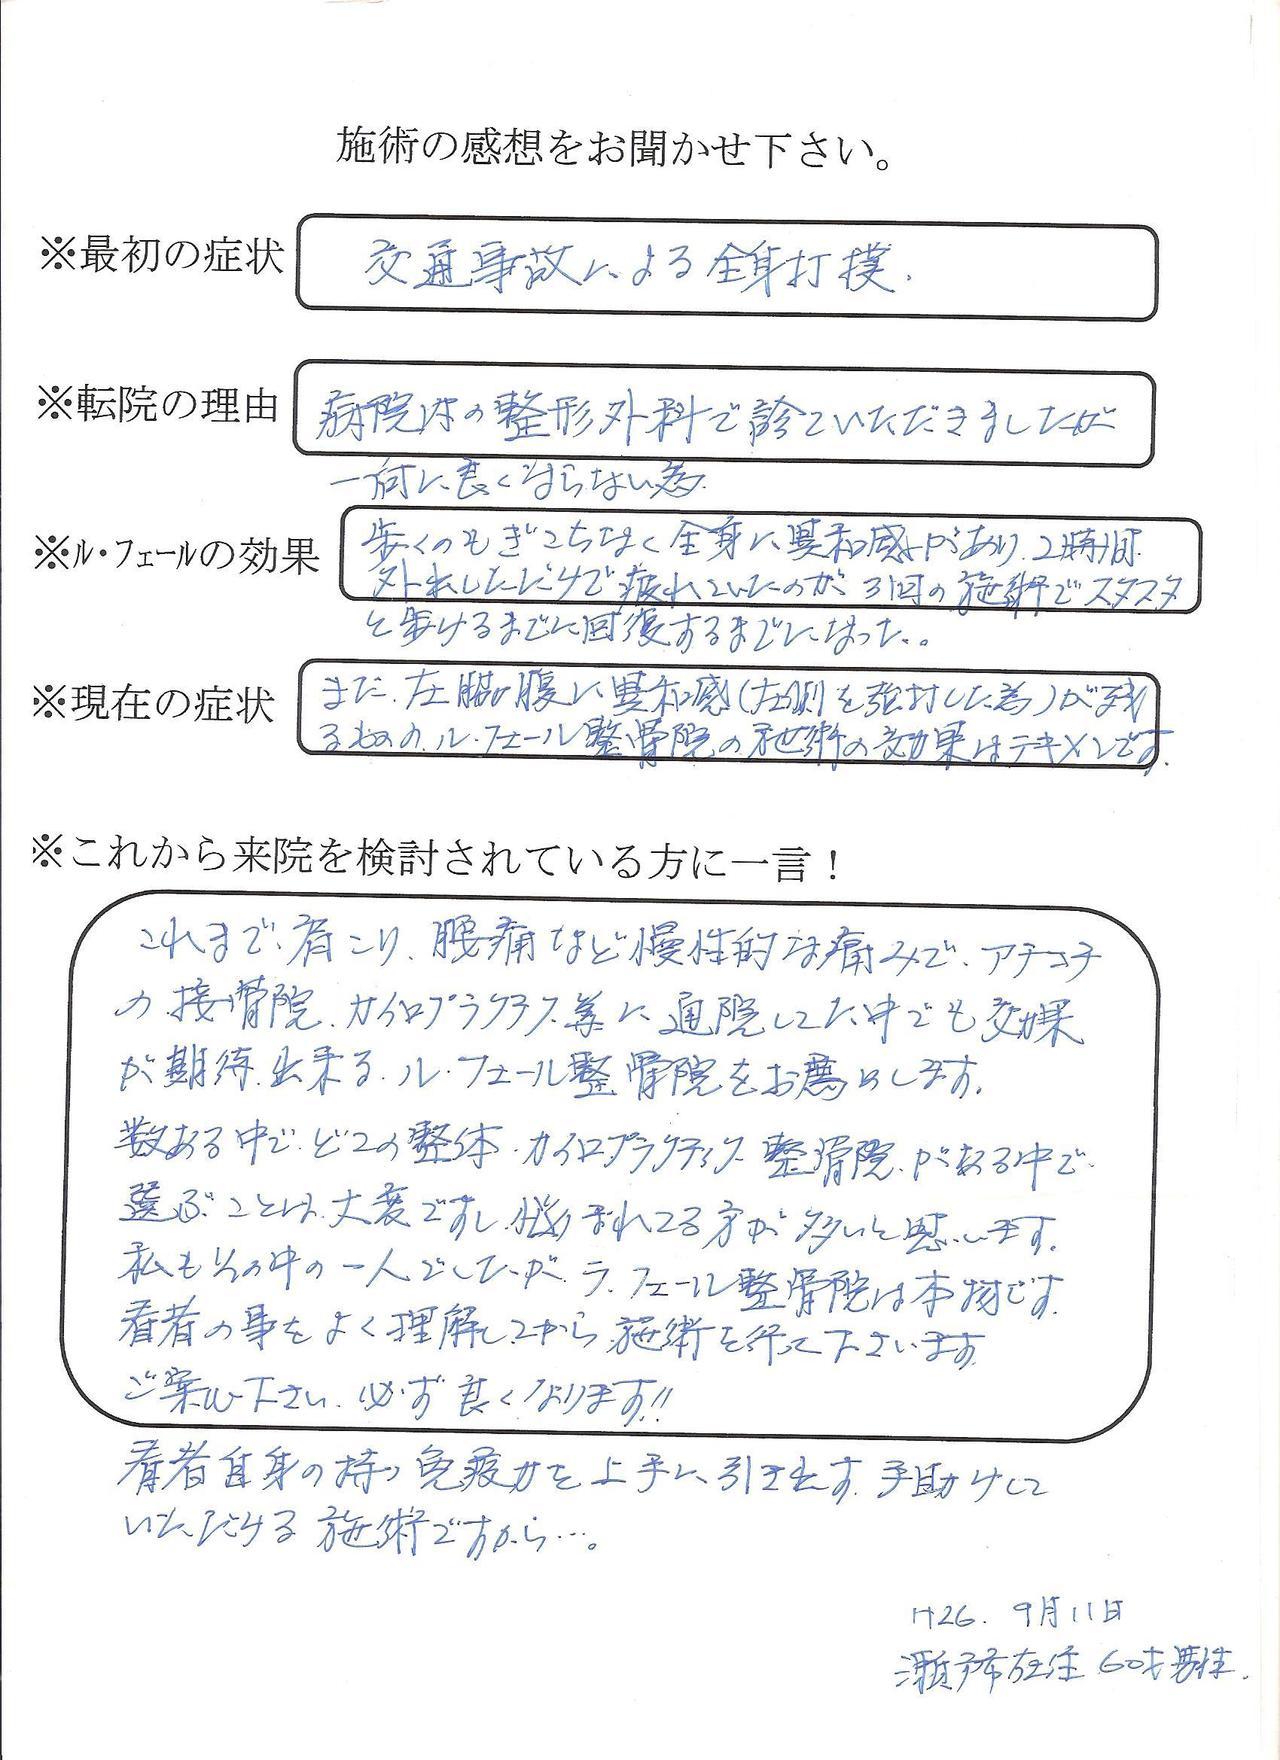 施術の感想をお聞かせ下さい。
※最初の症状
交通事故による全身打撲.
※転院の理由
病院内の整形外科で診ていただきましたが
一向に良くならない為.
※ル・フェールの効果
歩くのもぎこちなく全身に異和感があり、2時間
外出しただけで疲れていたのが3回の施術でスタスタ
と歩けるまでに回復するまでになった。。
※現在の症状
まだ、左脇の腹に異和感(左側を強打した為)が残
るものの、ル・フェール整骨院の施術の効果はテキメンです.
※これから来院を検討されている方に一言！
これまで、肩こり、腰痛など慢性的な痛みで、アチコチ
の接骨院、カイロプラクテス等に通院してた中でも効果
が期待出来る、ル・フェール整骨院をお薦めします.
数ある中で、どこの整体・カイロプラクティック 整骨院がある中で、
選ぶことは、大変ですし、悩まれてる方が多いと思います.
私もその中の一人でしたが、ラ・フェール整骨院は本物です.
看者の事をよく理解してから施術を行って下さいます
ご案心下さい、必ず良くなります!!
看者自身の持つ免疫力を上手に、引き出す、手助けして
いただける施術ですから…。
H26. 9月11日
瀬戸市在住 60才男性.